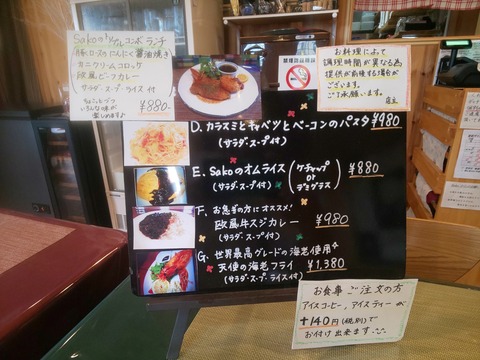 Sakoのリアルコンボランチ
豚ロースのにんにく醤油焼き
カニクリームコロッケ
欧風ビーフカレー
サラダ・スープ・ライス 付
ちょこっとづつ
いろんな味が
楽しめます♪
¥880-
お料理によって
調理時間が異なる為
提供が前後する場合が
ございます。
ご了承願います。
店主
D. カラスミとキャベツとベーコンのパスタ ¥980
(サラダ・スープ付)
E. Sakoのオムライス (ケチャップ or デミグラス) ¥880
(サラダ・スープ付)
F. お急ぎの方にオススメ!
欧風牛スジカレー ¥980
(サラダ・スープ付)
G. 世界最高グレードの海老使用
天使の海老フライ ¥1,380
(サラダ・スープ・ライス付)
お食事ご注文の方
アイスコーヒー、アイスティーが
+140円(税別)で
お付け出来ます